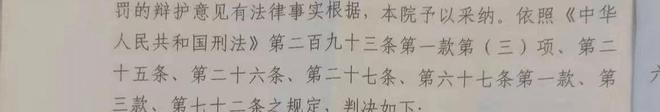 罚的辩护意见有法律事实根据，本院予以采纳。依照《中华
人民共和国刑法》第二百九十三条第一款第（三）项、第二
十五条、第二十六条、第二十七条、第六十七条第一款、第
三款、第七十二条之规定，判决如下：
六